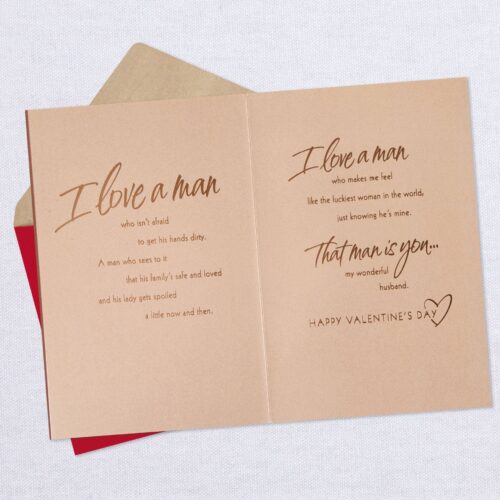 I love a man
who isn't afraid
to get his hands dirty.
A man who sees to it
that his family's safe and loved
and his lady gets spoiled
a little now and then.
I love a man
who makes me feel
like the luckiest woman in the world,
just knowing he's mine.
That man is you...
my wonderful
husband.
HAPPY VALENTINE'S DAY